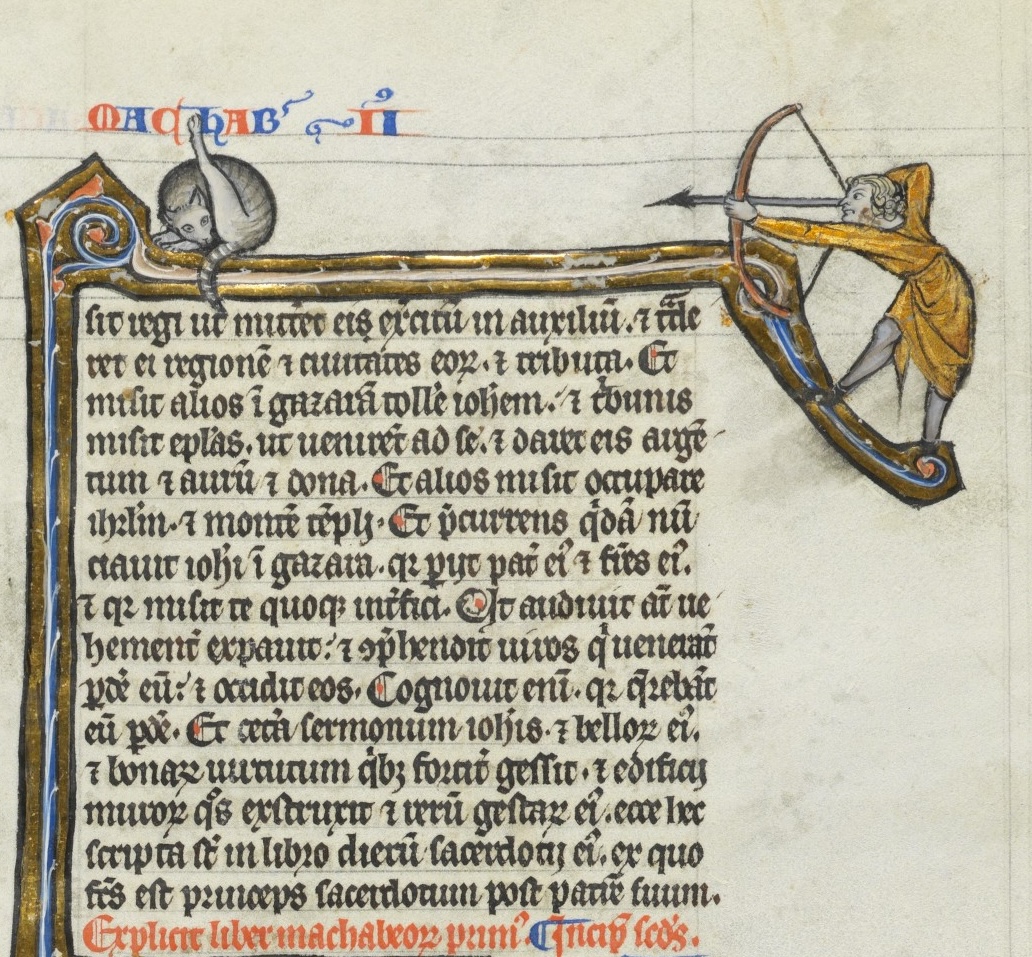 MAChAB' II
sit regi ut mitteret eis ex̄citū in auxiliū. ⁊ t͛de
ret ei regionē ⁊ ciuitates eoꝝ. ⁊ tributa. Et
misit alios ī gazarā tolle͛ ioh̄em. ⁊ t͛bunis
misit ep̄las. ut uenirēt ad se. ⁊ daret eis argē
tum ⁊ aurū ⁊ dona. Et alios misit occupare
ih̄rlm̄. ⁊ montē tēpli. Et p̄currens q̄dā nū
ciauit ioh̄i ī gazara. qꝛ ꝑijt pat̄ ei᷒ ⁊ fr̄es ei᷒.
⁊ qꝛ misit te quoqꝫ int̄fici. Ut audiuit aūt ue
hement̄ expauit. ⁊ ꝯp̄hendit uiros q' uenerāt
ꝑde͛ eū. ⁊ occidit eos. Cognouit eni. qꝛ q̄rebāt
eū ꝑde͛. Et cet̄a sermonum ioh̄is. ⁊ belloꝝ ei᷒.
⁊ bonaꝝ uirtutum q'bꝫ fortit̄ gessit. ⁊ edificij
muroꝝ q͛s exstruxit ⁊ rerū gestaꝝ ei᷒. ecce hec
scripta st̄ in libro dierū sacerdotij ei᷒. ex quo
fc̄s est princeps sacerdotum post patrē suum.
Explicit liber machabeoꝝ prim᷒. Incip̄ scd̄s.